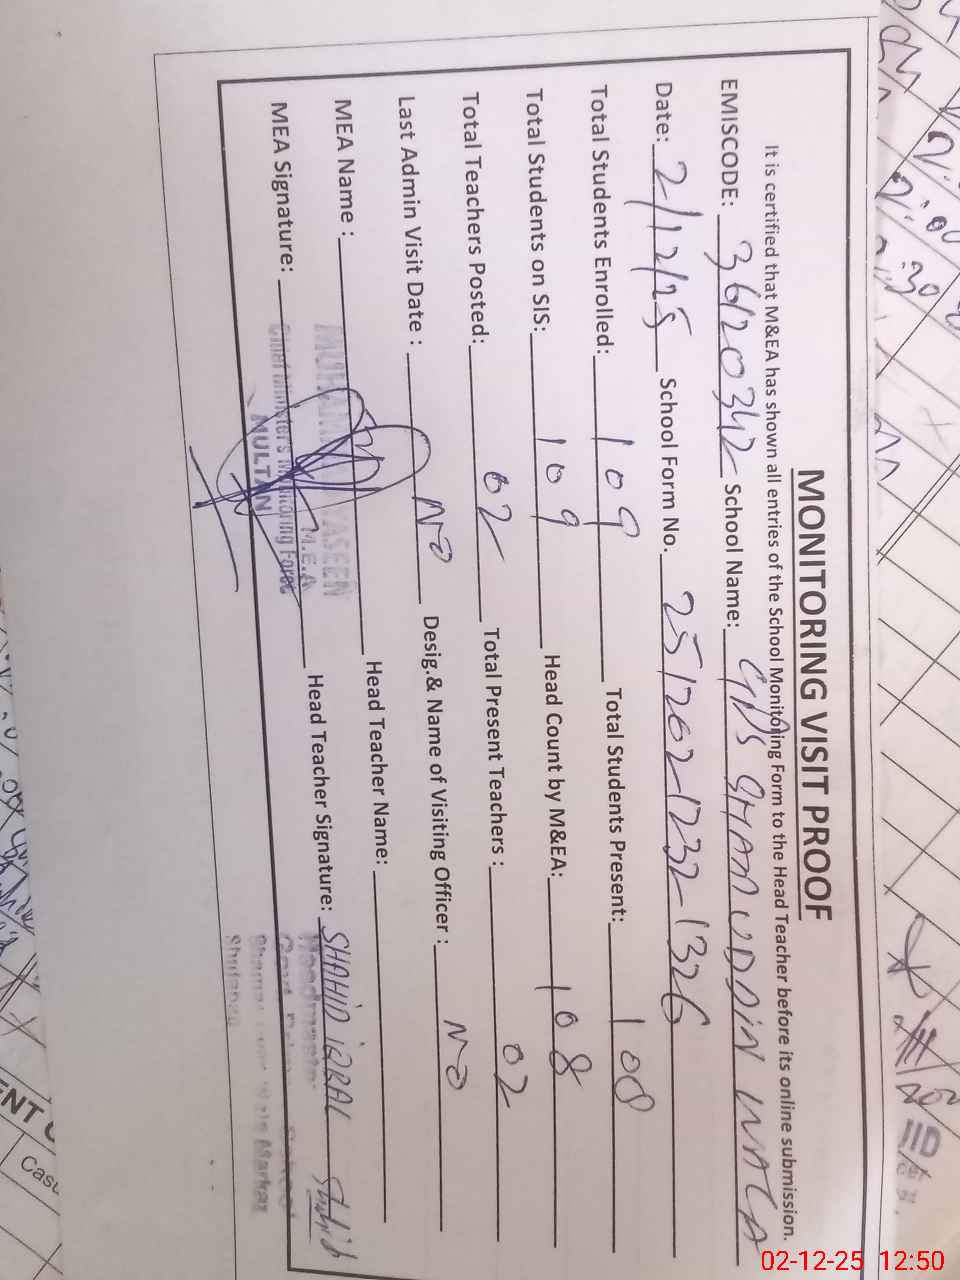 MONITORING VISIT PROOF
It is certified that M&EA has shown all entries of the School Monitoring Form to the Head Teacher before its online submission.
EMISCODE: 36120342 School Name: GPS SHAM UDDIN WALA
Date: 2/12/25 School Form No. 251202-1232-1326
Total Students Enrolled: 109 Total Students Present: 108
Total Students on SIS: 109 Head Count by M&EA: 108
Total Teachers Posted: 02 Total Present Teachers : 02
Last Admin Visit Date : No Desig.& Name of Visiting Officer : No
MEA Name : Head Teacher Name:
MUHAMMAD YASEEN
M.E.A
MEA Signature: Head Teacher Signature: SHAHID IQBAL Shahid
Chief Minister's Monitoring Force
MULTAN
Headmaster
Govt.
Shujabad
2:00
:30
ENT
Casu
02-12-25 12:50